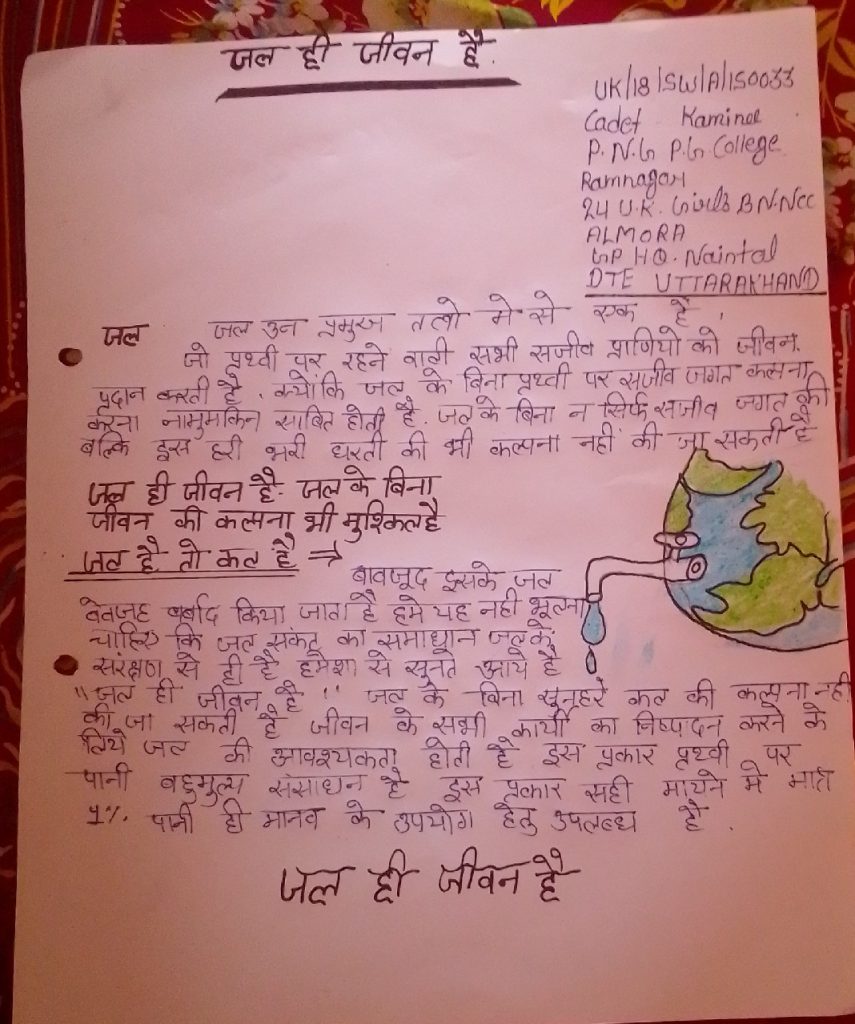 जल ही जीवन है.
UK/18/SW/A/150033
Cadet Kaminee
P.N.G P.G. College
Ramnagar
24 U.K. Girls BN.NCC
ALMORA
GP HQ. Naintal
DTE UTTARAKHAND
जल जल उन प्रमुख तत्वो मे से एक है,
जो प्रथ्वी पर रहने वाली सभी सजीव प्राणियो को जीवन.
प्रदान करती है. क्योकि जल के बिना प्रथ्वी पर सजीव जगत कल्पना
करना नामुमकिन साबित होती है. जल के बिना न सिर्फ सजीव जगत की
बल्कि इस हरी भरी धरती की भी कल्पना नहीं की जा सकती है
जल ही जीवन है. जल के बिना
जीवन की कल्पना भी मुश्किल है
जल है तो कल है ⇒
बावजूद इसके जल
बेवजह बर्बाद किया जाता है हमे यह नही भूलना
चाहिए कि जल संकट का समाधान जल के
संरक्षण से ही है हमेशा से सुनते आये है
"जल ही जीवन है" जल के बिना सुनहरे कल की कल्पना नही
की जा सकती है जीवन के सभी कार्यो का निष्पादन करने के
लिये जल की आवश्यकता होती है इस प्रकार प्रथ्वी पर
पानी बहुमुल्य संसाधन है इस प्रकार सही मायने मे मात्र
1%. पानी ही मानव के उपयोग हेतु उपलब्ध है.
जल ही जीवन है